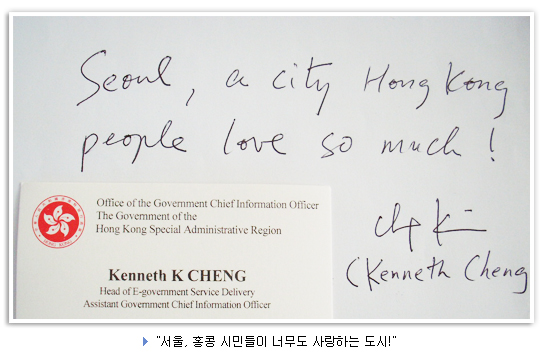 Seoul, a city Hong Kong
people love so much!
Office of the Government Chief Information Officer
The Government of the
Hong Kong Special Administrative Region
Kenneth K CHENG
Head of E-government Service Delivery
Assistant Government Chief Information Officer
(Kenneth Cheng
"서울, 홍콩 시민들이 너무도 사랑하는 도시!"